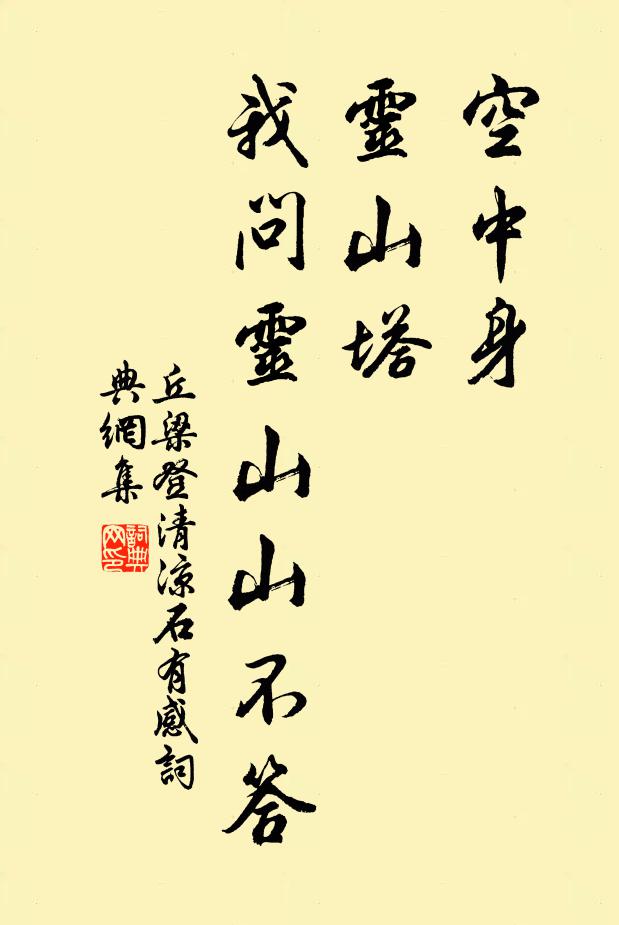 空中身
靈山塔
我問靈山山不答
丘梁登清涼石有感詞
典網集
詞典
网印